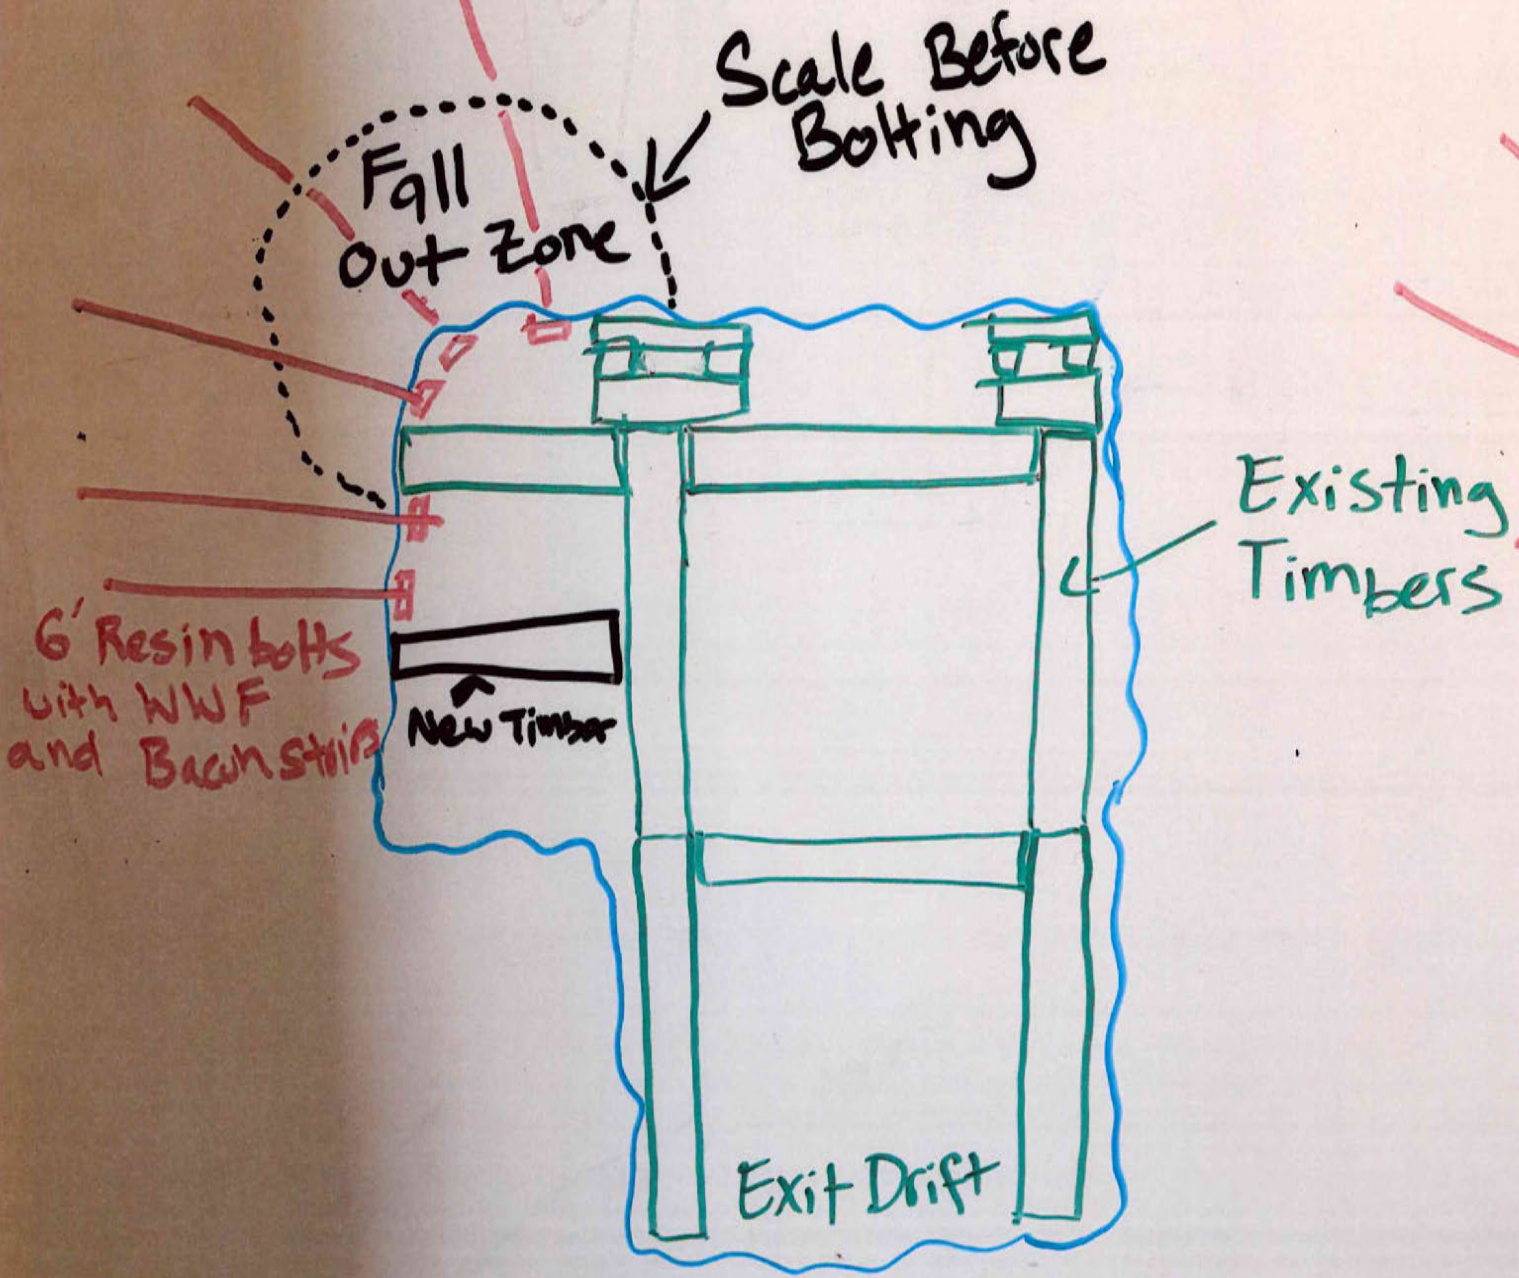 Scale Before
Bolting
Fall
Out Zone
Existing
Timbers
6' Resin bolts
with WWF
and Bacon strips
New Timber
Exit Drift